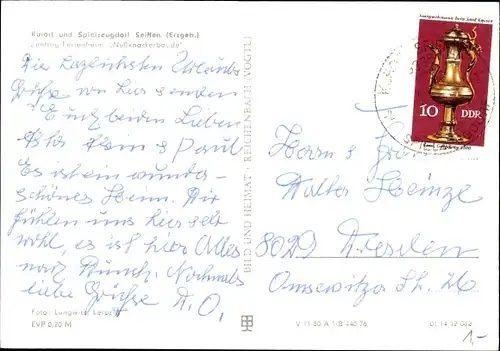 Kurort und Spielzeugdorf Seiffen (Erzgeb.)
Zentrag-Ferienheim „Nußknackerbaude"
Die herzlichsten Urlaubs
Grüße von hier senden
Euch beiden Lieben
Paul
Es ist ein wunder-
schönes Heim. Wir
fühlen uns hier sehr
wohl, es ist hier Alles
nach Wunsch. Nochmals
liebe Grüße D. O.
Foto: Lungwitz, Leipzig
EVP 0,20 M
BILD UND HEIMAT · REICHENBACH (VOGTL)
V 11 50 A 1/B 440/76
01 14 12 062
10 DDR
Herrn
Walter Heinze
8029 Dresden
Omsewitzer Str. 26
1-